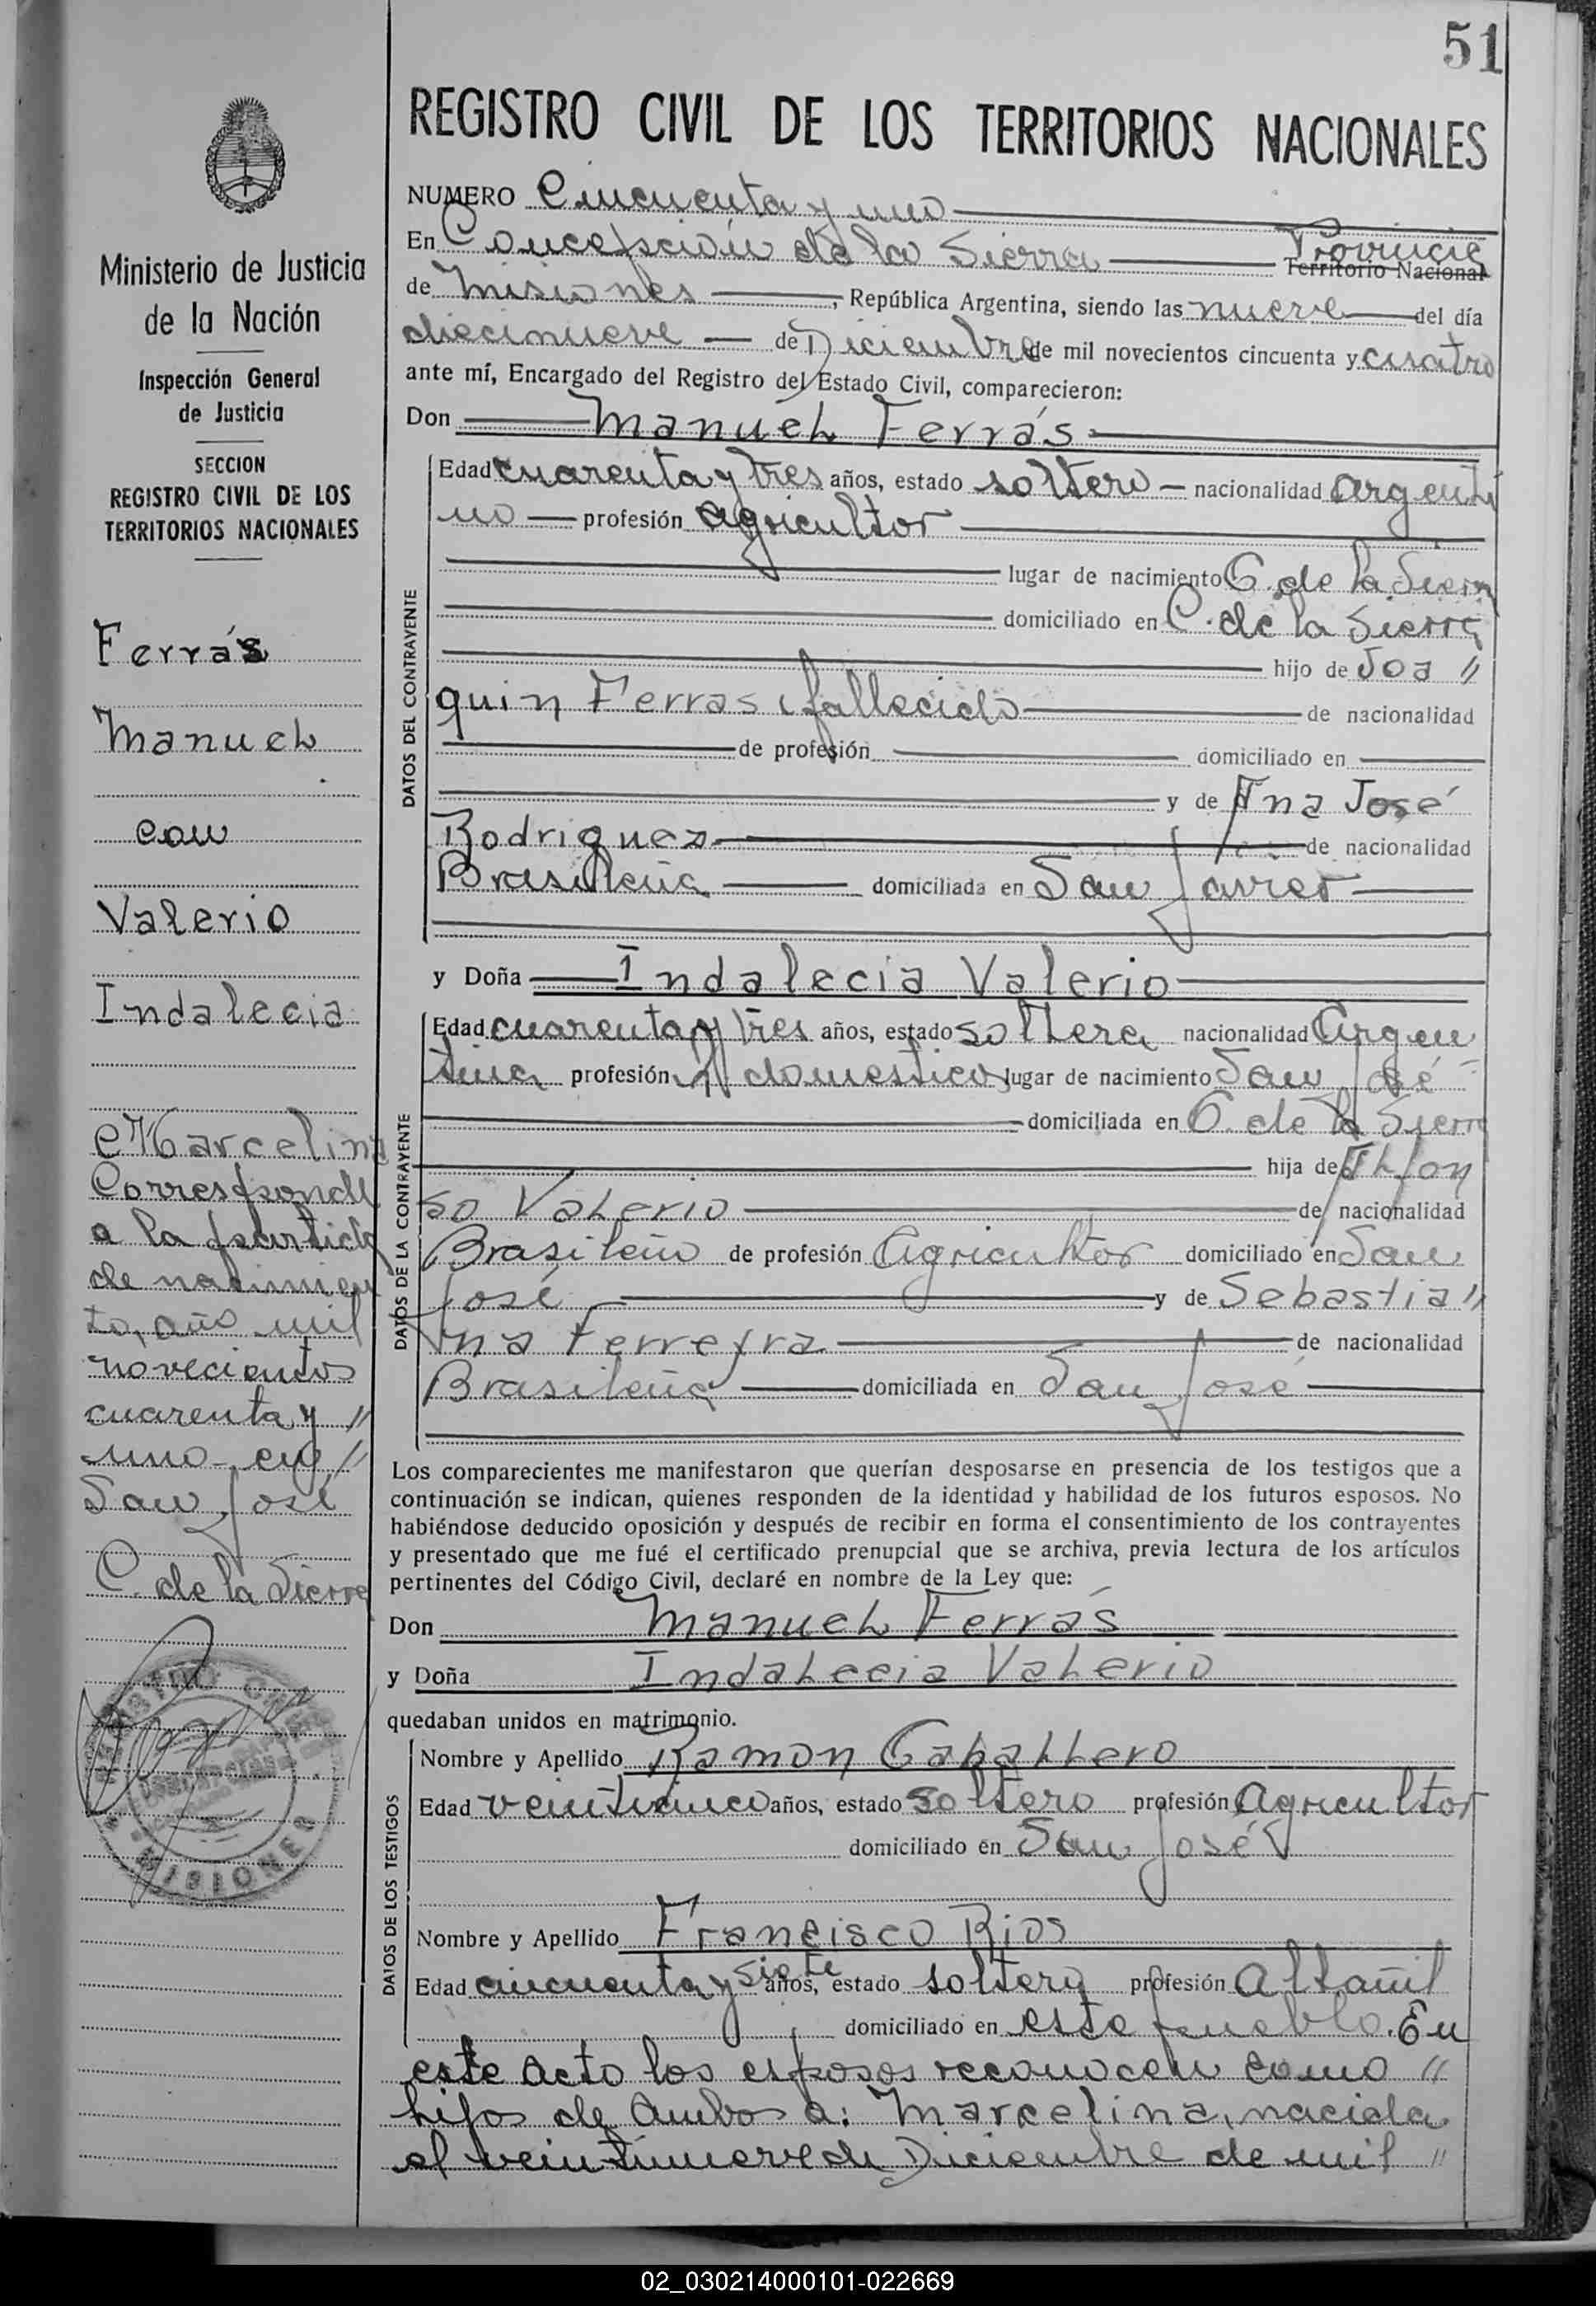 51
REGISTRO CIVIL DE LOS TERRITORIOS NACIONALES
Ministerio de Justicia
de la Nación
Inspección General
de Justicia
SECCION
REGISTRO CIVIL DE LOS
TERRITORIOS NACIONALES
Ferrás
Manuel
con
Valerio
Indalecia
Marcelina
Corresponde
a la partida
de nacimien
to, año mil
novecientos
cuarenta y "
uno en "
San José
C. de la Sierra
REGISTRO CIVIL
MISIONES
NUMERO Cincuenta y uno
En Concepción de la Sierra Provincia
Territorio Nacional
de Misiones, República Argentina, siendo las nueve del día
diecinueve de Diciembre de mil novecientos cincuenta y cuatro
ante mí, Encargado del Registro del Estado Civil, comparecieron:
Don Manuel Ferrás
DATOS DEL CONTRAYENTE
Edad cuarenta y tres años, estado soltero nacionalidad argenti
no profesión agricultor
lugar de nacimiento C. de la Sierra
domiciliado en C. de la Sierra
hijo de Joa "
quin Ferras fallecido de nacionalidad
de profesión domiciliado en
y de Ana José
Rodriguez de nacionalidad
Brasileña domiciliada en San Javier
y Doña Indalecia Valerio
DATOS DE LA CONTRAYENTE
Edad cuarenta y tres años, estado soltera nacionalidad Argen
tina profesión q/ domesticos lugar de nacimiento San José
domiciliada en C. de la Sierra
hija de Alfon
so Valerio de nacionalidad
Brasileño de profesión Agricultor domiciliado en San
José y de Sebastia "
na Ferreyra de nacionalidad
Brasileña domiciliada en San José
Los comparecientes me manifestaron que querían desposarse en presencia de los testigos que a
continuación se indican, quienes responden de la identidad y habilidad de los futuros esposos. No
habiéndose deducido oposición y después de recibir en forma el consentimiento de los contrayentes
y presentado que me fué el certificado prenupcial que se archiva, previa lectura de los artículos
pertinentes del Código Civil, declaré en nombre de la Ley que:
Don Manuel Ferrás
y Doña Indalecia Valerio
quedaban unidos en matrimonio.
DATOS DE LOS TESTIGOS
Nombre y Apellido Ramon Caballero
Edad veinticinco años, estado soltero profesión Agricultor
domiciliado en San José
Nombre y Apellido Francisco Rios
Edad cincuenta y siete años, estado soltero profesión Albañil
domiciliado en este pueblo. En
este acto los esposos reconocen como "
hijos de ambos a: Marcelina, nacida
el veintinueve de Diciembre de mil "
02_030214000101-022669